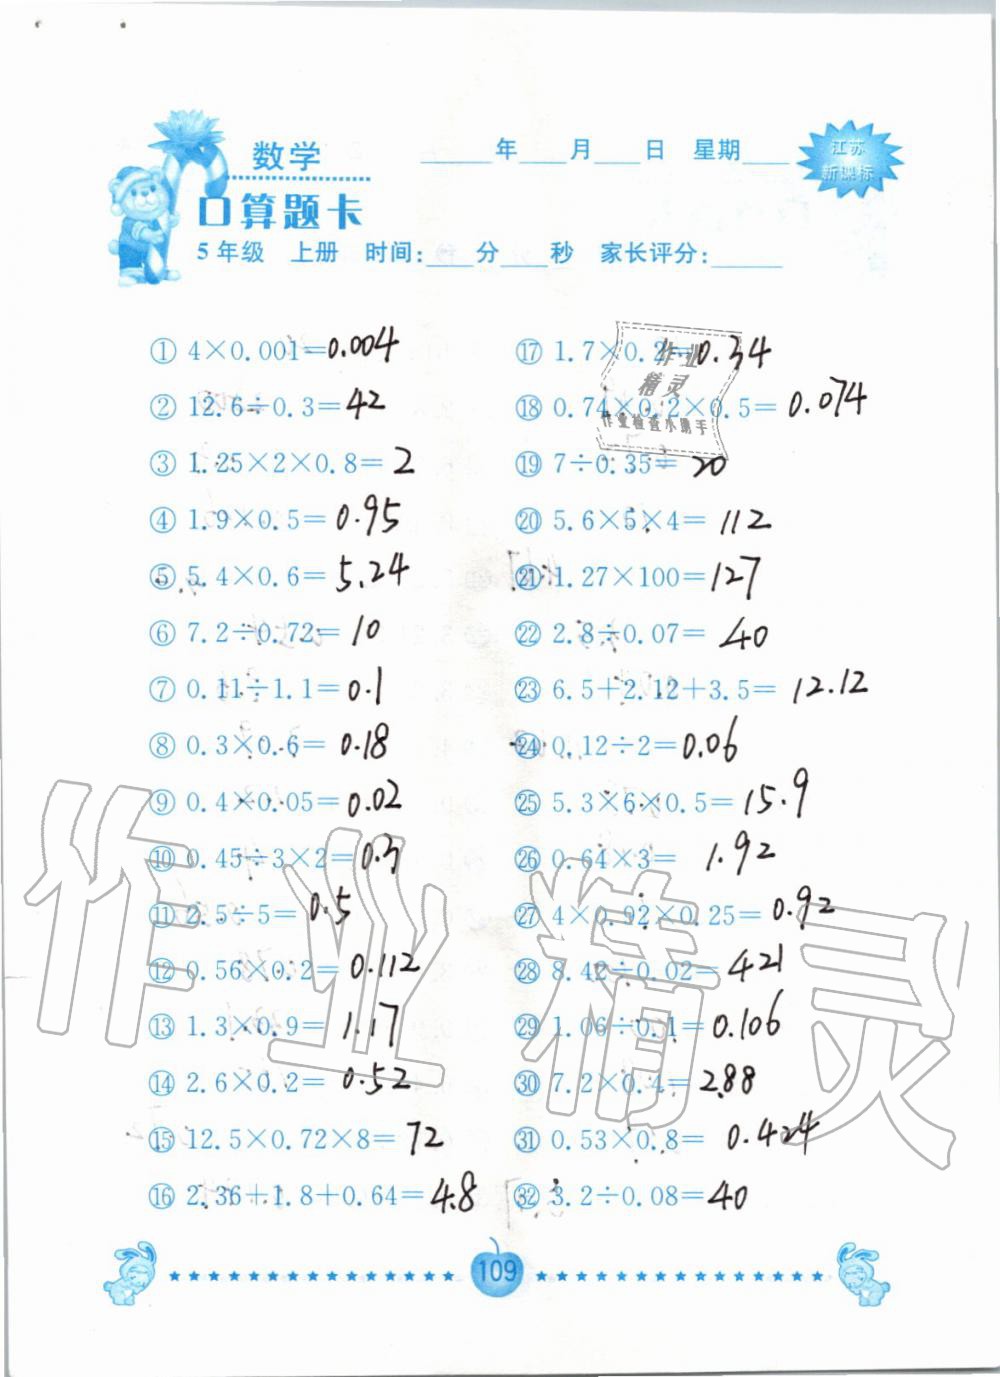 数学
____年___月___日 星期___
江苏
新课标
口算题卡
5年级 上册 时间:___分___秒 家长评分:_____
① 4×0.001=0.004
② 12.6÷0.3=42
③ 1.25×2×0.8=2
④ 1.9×0.5=0.95
⑤ 5.4×0.6=5.24
⑥ 7.2÷0.72=10
⑦ 0.11÷1.1=0.1
⑧ 0.3×0.6=0.18
⑨ 0.4×0.05=0.02
⑩ 0.45÷3×2=0.3
⑪ 2.5÷5=0.5
⑫ 0.56×0.2=0.112
⑬ 1.3×0.9=1.17
⑭ 2.6×0.2=0.52
⑮ 12.5×0.72×8=72
⑯ 2.36+1.8+0.64=4.8
⑰ 1.7×0.2=0.34
⑱ 0.74×0.2×0.5=0.074
⑲ 7÷0.35=20
⑳ 5.6×5×4=112
㉑ 1.27×100=127
㉒ 2.8÷0.07=40
㉓ 6.5+2.12+3.5=12.12
㉔ 0.12÷2=0.06
㉕ 5.3×6×0.5=15.9
㉖ 0.64×3=1.92
㉗ 4×0.92×0.25=0.92
㉘ 8.42÷0.02=421
㉙ 1.06÷0.1=0.106
㉚ 7.2×0.4=288
㉛ 0.53×0.8=0.424
㉜ 3.2÷0.08=40
作业
精灵
作业检查小助手
作业精灵
109